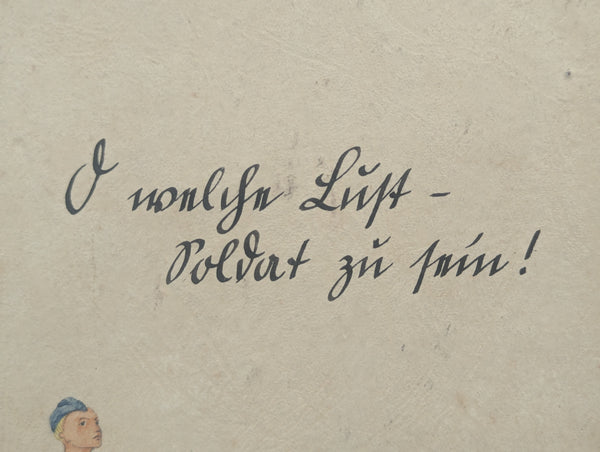 O welche Lust –
Soldat zu sein!